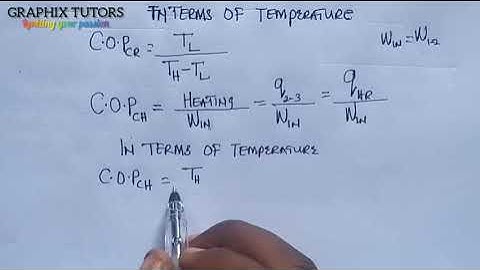 GRAPHIX TUTORS
Igniting your passion
IN TERMS OF TEMPERATURE
C.O.P_CR = T_L / (T_H - T_L)
W_IN = W_1-2
C.O.P_CH = HEATING / W_IN = q_2-3 / W_IN = q_HR / W_IN
IN TERMS OF TEMPERATURE
C.O.P_CH = T_H